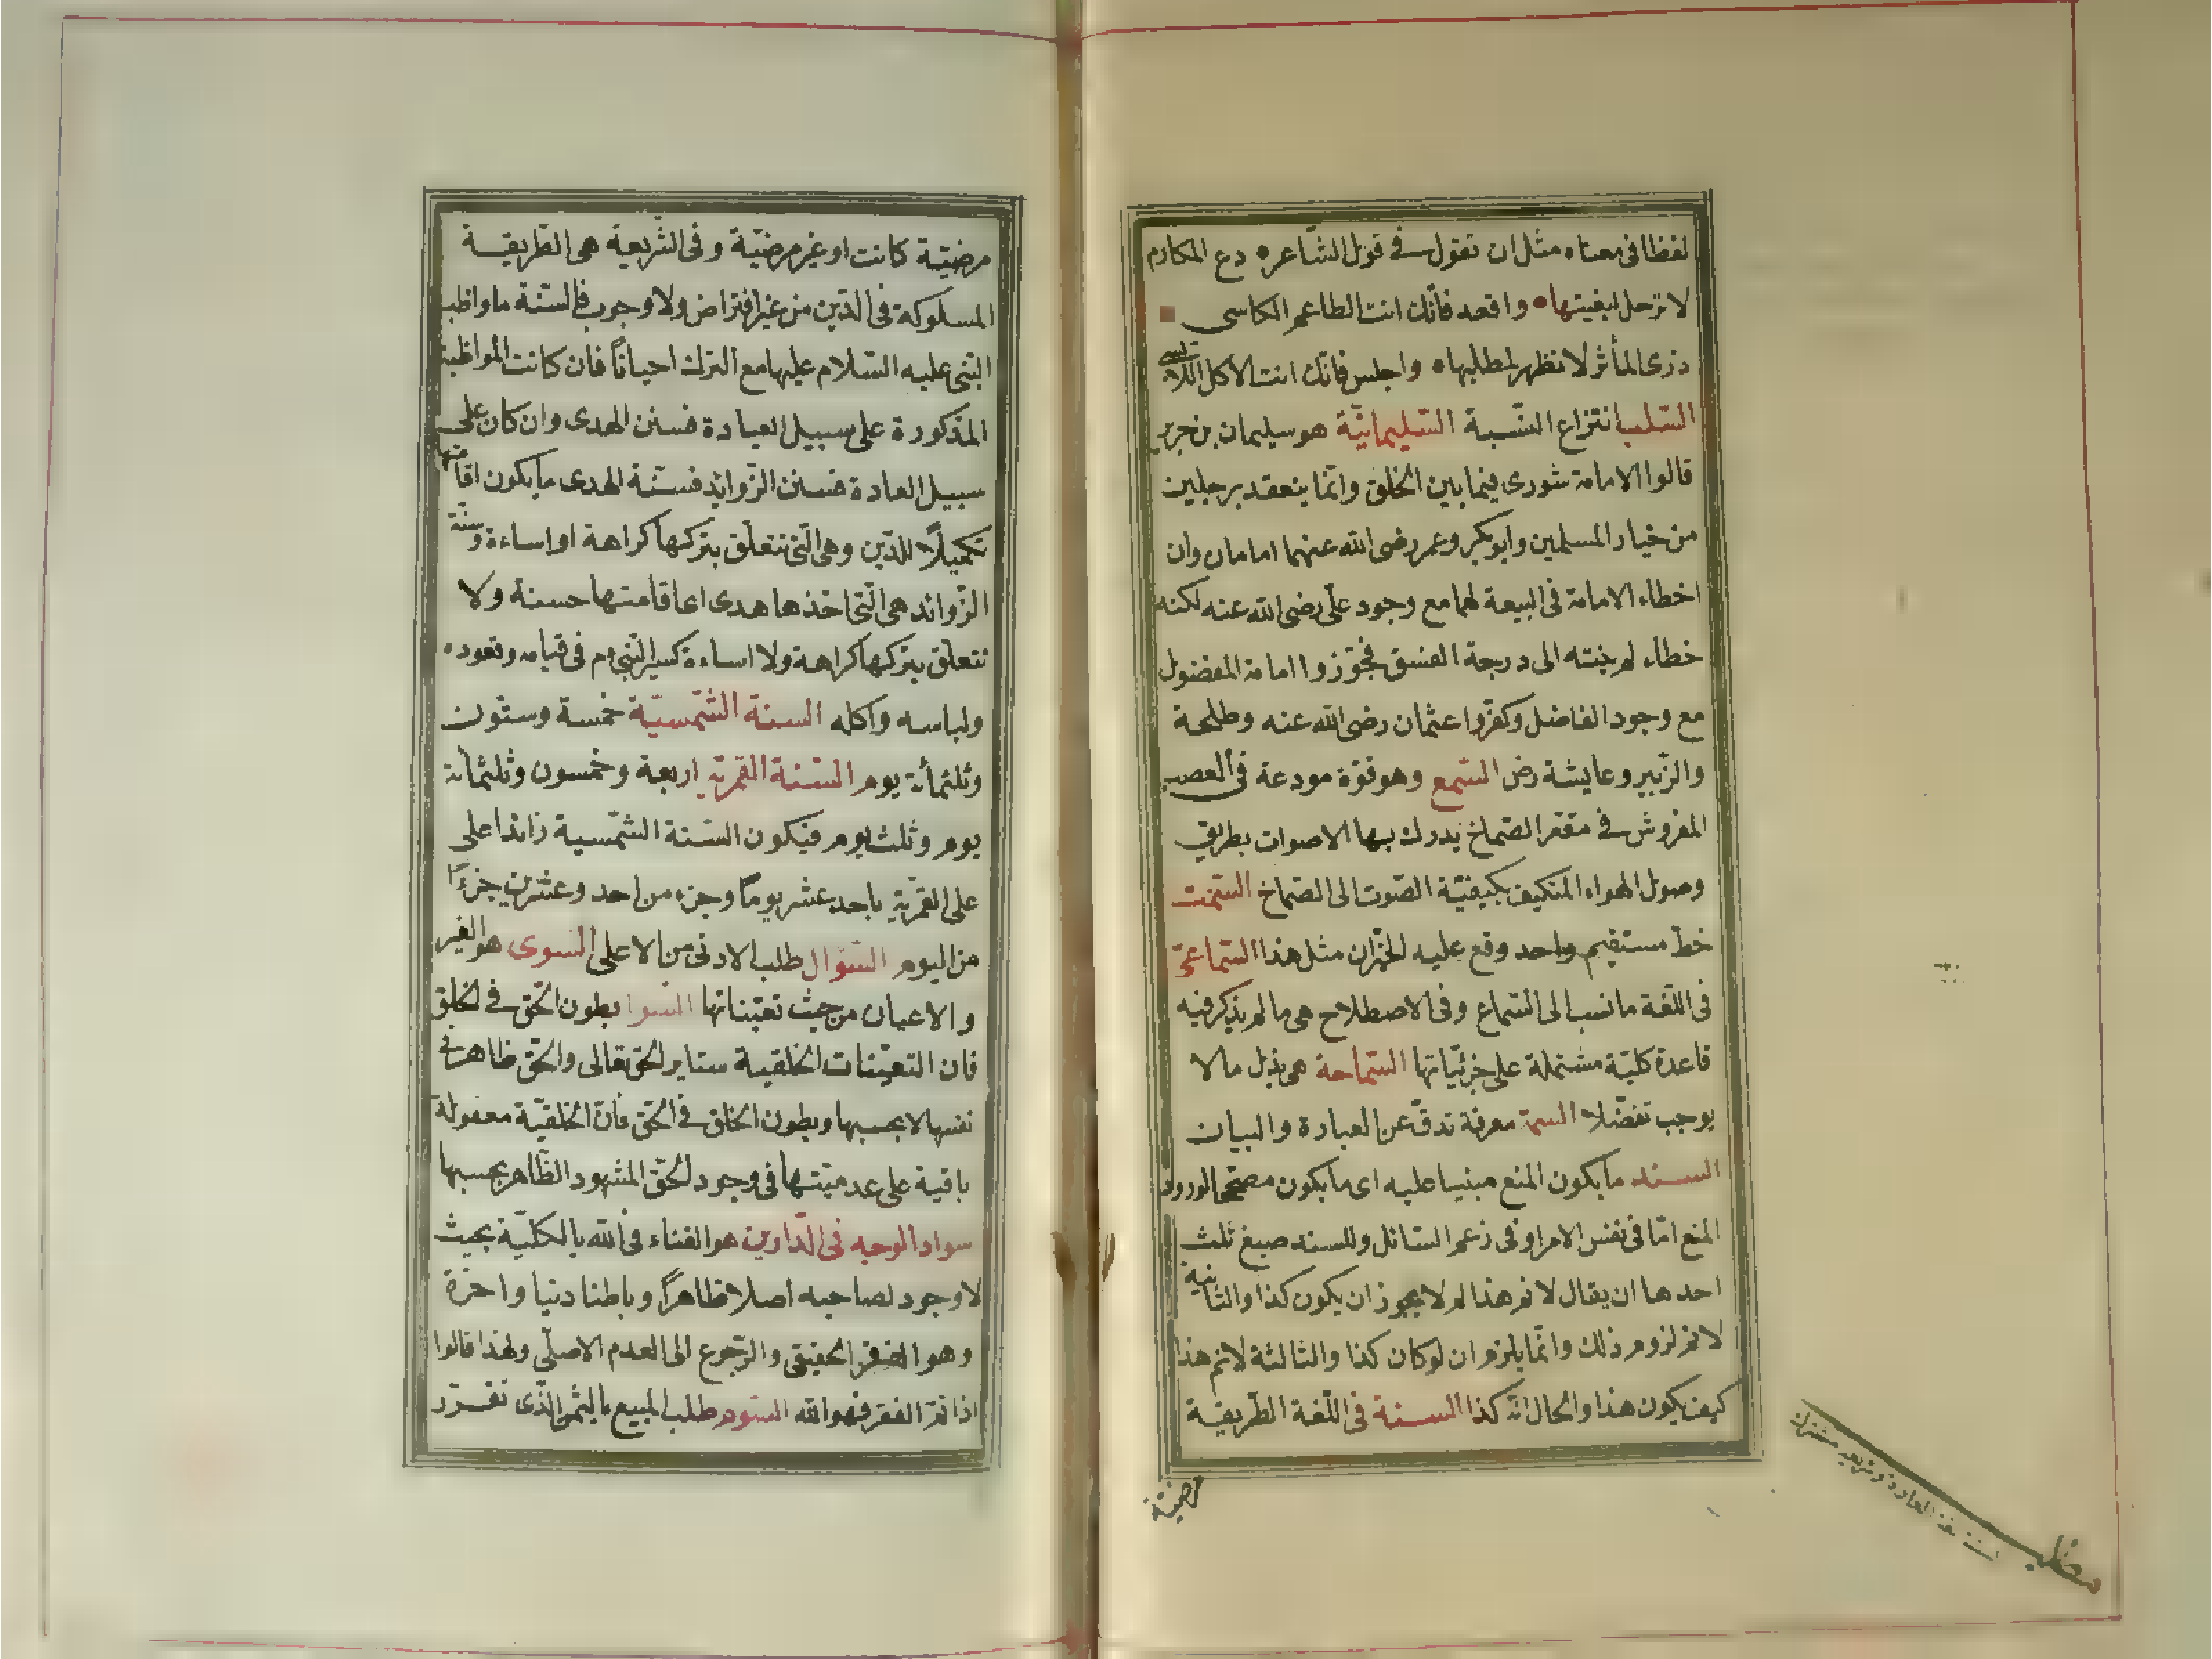 لفظا فى معناه مثل ان تقول فى قول الشاعر ه دع المكارم
لا ترحل لبغيتها ه واقعد فانّك انت الطاعم الكاسى
ذرى المأثر لا تظهر لمطلبها ه واجلس فانّك انت الاكل اللابسى
السّلب انتزاع النّسبة السّليمانيّة هو سليمان بن جرير
قالوا الامامة شورى فيما بين الخلق وانّما ينعقد برجلين
من خيار المسلمين وابو بكر وعمر رضى الله عنهما امامان وان
اخطاء الامامة فى البيعة لهما مع وجود علّى رضى الله عنه لكنه
خطاء لم ينته الى درجة الفسق فجّوزوا امامة المفضول
مع وجود الفاضل وكفّروا عثمان رضى الله عنه وطلحة
والزّبير وعايشة رض السّمع وهو قوّة مودعة فى العصب
المفروش فى مقعّر الصّماخ يدرك بها الاصوات بطريق
وصول الهواء المتكيف بكيفيّة الصّوت الى الصّماخ السّمت
خطّ مستقيم واحد وقع عليه الخيّزان مثل هذا السّماعىّ
فى اللّغة ما نسب الى السّماع وفى الاصطلاح هى ما لم يذكر فيه
قاعدة كليّة مشتملة على جزئيّاتها السّماحة هى بذل ما لا
يوجب تفضّلا السمة معرفة تدقّ عن العبارة والبيان
السند ما يكون المنع مبنيا عليه اى ما يكون مصحّحا لورود
المنع امّا فى نفس الامر او فى زعم السّائل وللسند صيغ ثلث
احدها ان يقال لا نم هذا لم لا يجوز ان يكون كذا والثانية
لا نم لزوم ذلك وانّما يلزم ان لو كان كذا والثالثة لا نم هذا
كيف يكون هذا والحال انّه كذا السنة فى اللّغة الطّريقة
مرضيّة
مطلب
مرضيّة كانت او غير مرضيّة وفى الشّريعة هى الطّريقة
المسلوكة فى الدّين من غير افتراض ولا وجوب فالسّنة ما واظب
النّبى عليه السّلام عليها مع الترك احياناً فان كانت المواظبة
المذكورة على سبيل العبادة فسنن الهدى وان كان على
سبيل العادة فسنن الزّوايد فسنّة الهدى ما يكون اقامتها
تكميلاً للدّين وهى الّتى تتعلّق بتركها كراهة او اساءة وسنّة
الزّوائد هى الّتى اخذها هدى اى اقامتها حسنة ولا
تتعلّق بتركها كراهة ولا اساءة كسير النّبى ءم فى قيامه وقعوده
ولباسه واكله السنة الشّمسيّة خمسة وستون
وثلثمأئة يوم السّنة القمريّة اربعة وخمسون وثلثمائة
يوم وثلث يوم فيكون السّنة الشّمسية زائدا على
على القمريّة باحد عشر يوماً وجزء من احد وعشرين جزءًا
من اليوم السّؤال طلب الادنى من الاعلى السوى هو الغير
والاعيان من حيث تعيّناتها السوا بطون الحّق فى الخلق
فان التعيّنات الخلقية ستاير الحّق تعالى والحّق ظاهر فى
نفسها لا بحسبها وبطون الخلق فى الحّق فانّ الخلقيّة معقولة
باقية على عدميّتها فى وجود الحّق المشهود الظّاهر بحسبها
سواد الوجه فى الدّارين هو الفناء فى الله بالكليّة بحيث
لا وجود لصاحبه اصلا ظاهراً وباطنا دنيا واخرة
وهو الفقر الحقيقى والرّجوع الى العدم الاصلّى ولهذا قالوا
اذا تمّ الفقر فهو الله السّوم طلب المبيع بالثّمن الّذى تقرّر